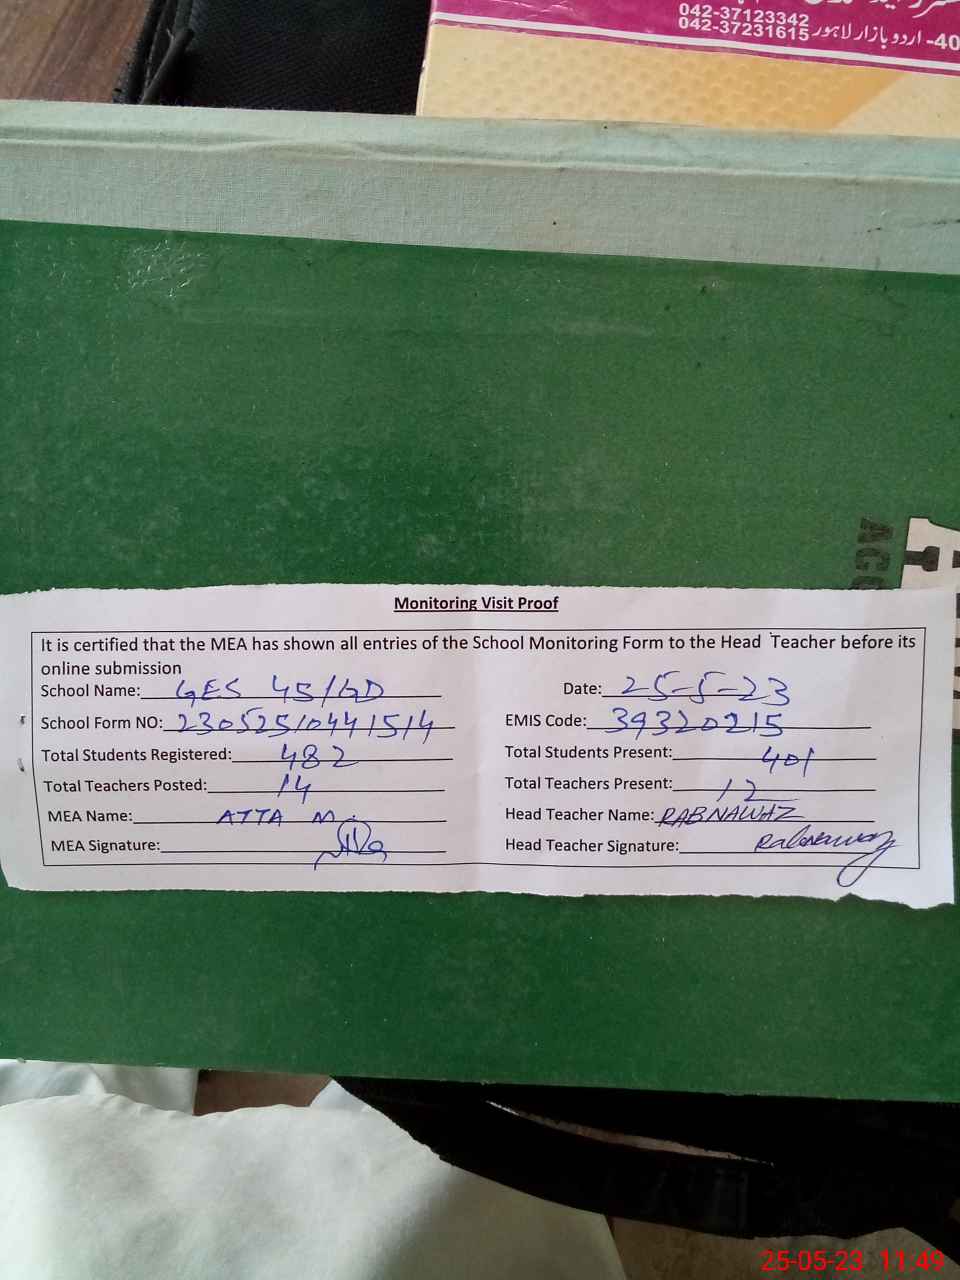 042-37123342
40- اردو بازار لاہور 042-37231615
Monitoring Visit Proof
It is certified that the MEA has shown all entries of the School Monitoring Form to the Head Teacher before its
online submission
School Name: GES 45/GD Date: 25-5-23
School Form NO: 23052510441514 EMIS Code: 39320215
Total Students Registered: 482 Total Students Present: 401
Total Teachers Posted: 14 Total Teachers Present: 12
MEA Name: ATTA M. Head Teacher Name: RABNAWAZ
MEA Signature: Head Teacher Signature: Rabnawaz
25-05-23 11:49